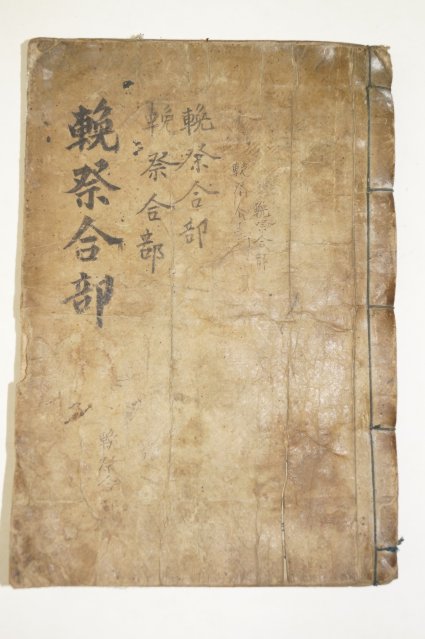 輓祭合部
輓祭合部
輓祭合部
輓祭合部
輓祭合
輓祭